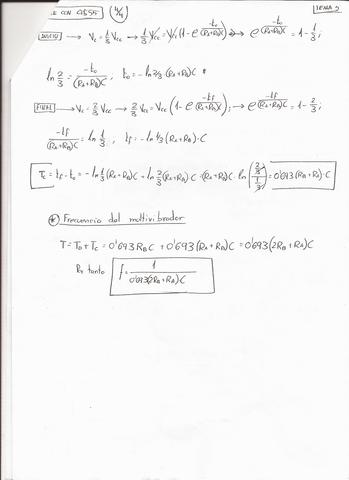 CON CI555 4/4 TEMA 5
INICIO → Vc = 1/3 Vcc → 1/3 Vcc = Vcc (1 - e^(-to/(RA+RB)C)) → e^(-to/(RA+RB)C) = 1 - 1/3;
ln 2/3 = -to/(RA+RB)C ; to = -ln 2/3 · (RA+RB)C *
FINAL → Vc = 2/3 Vcc → 2/3 Vcc = Vcc (1 - e^(-tf/(RA+RB)C)); → e^(-tf/(RA+RB)C) = 1 - 2/3;
-tf/(RA+RB)C = ln 1/3 ; tf = -ln 1/3 (RA+RB)·C
Tc = tf - to = -ln 1/3 (RA+RB)C + ln 2/3 (RA+RB)·C = (RA+RB)C · ln((2/3)/(1/3)) = 0'693 (RA+RB)·C
* Frecuencia del multivibrador
T = TD + TC = 0'693 RB C + 0'693 (RA+RB)C = 0'693 (2RB+RA)C
Por tanto f = 1/(0'693 (2RB+RA)C)